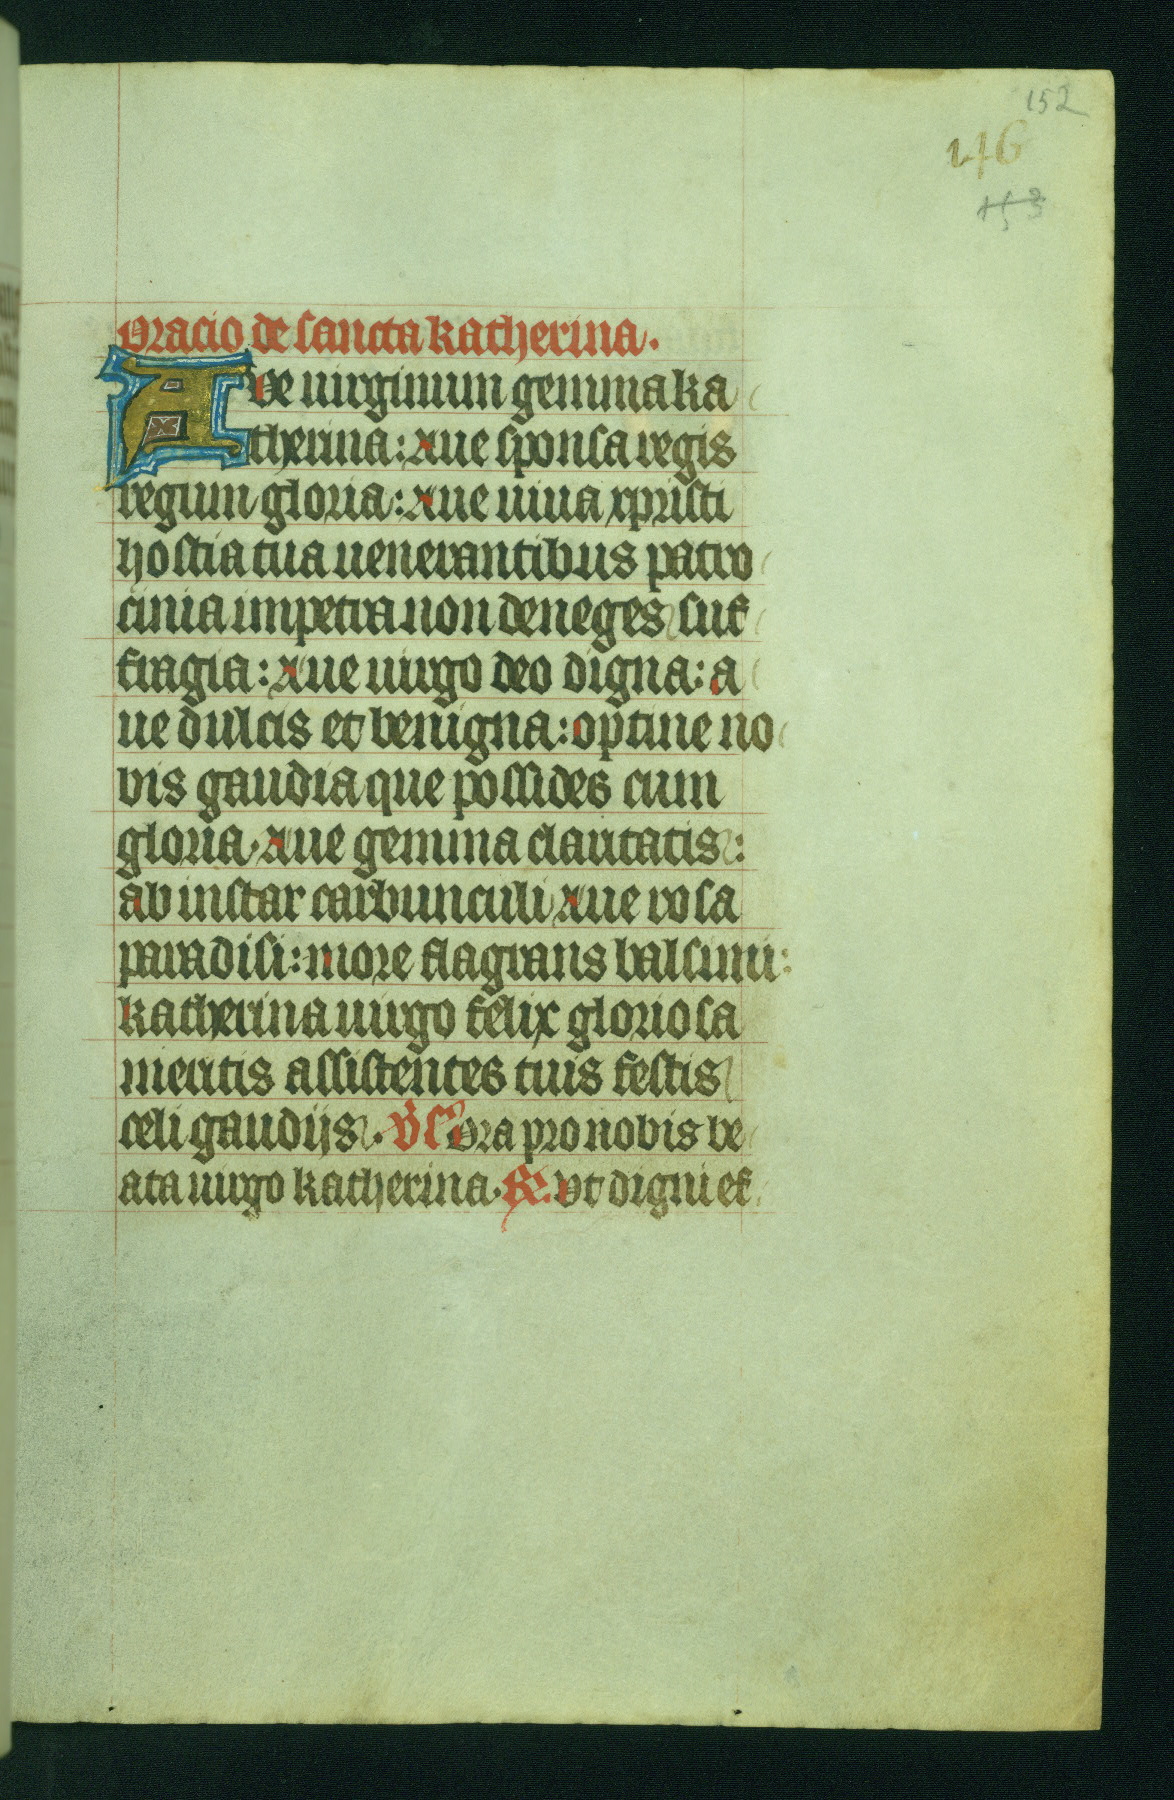 152
146
153
Oracio de sancta katherina.
Ave uirginum gemma ka
therina: Aue sponsa regis
regum gloria: Aue uiua xpristi
hostia tua uenerantibus patro
cinia impetra non deneges suf
fragia: Aue uirgo deo digna: a
ue dulcis et benigna: optine no
bis gaudia que possides cum
gloria. Aue gemma claritatis:
ab instar carbunculi Aue rosa
paradisi: more flagrans balsimi:
katherina uirgo felix gloriosa
meritis assistentes tuis festis
celi gaudijs. Ora pro nobis be
ata uirgo katherina. Vt digni ef